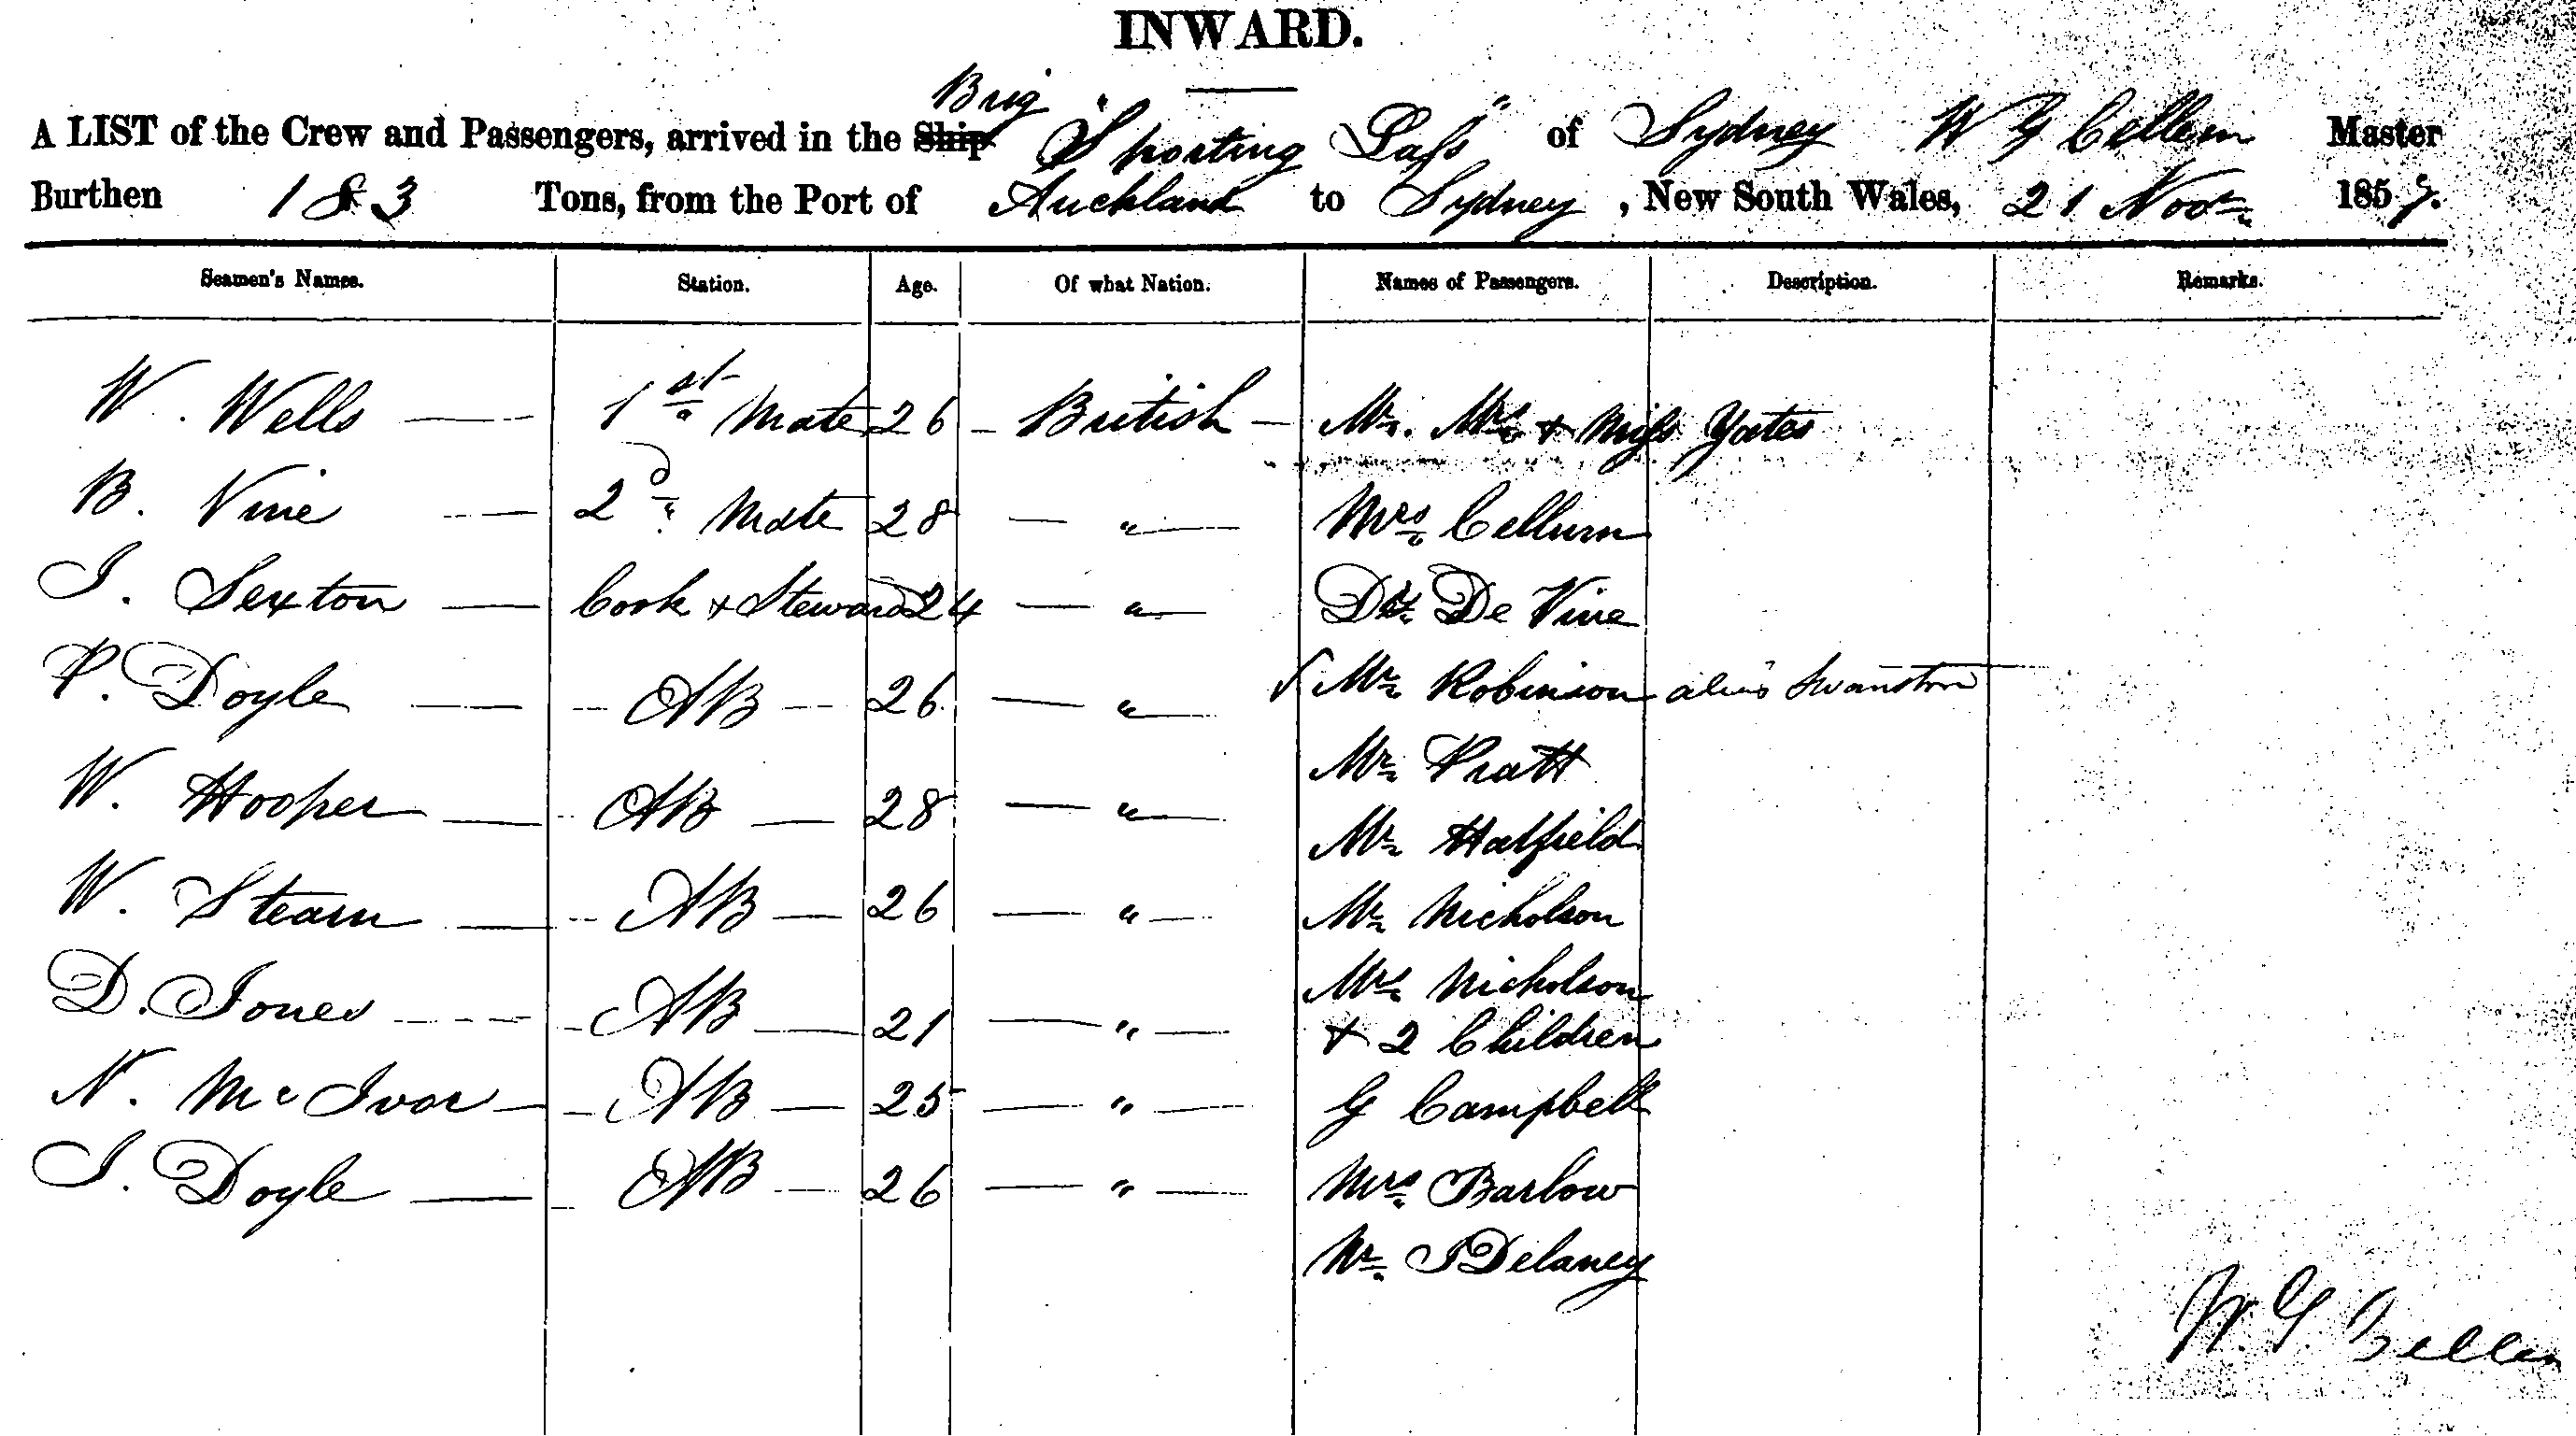 INWARD.
Brig
A LIST of the Crew and Passengers, arrived in the Ship "Sporting Lass" of Sydney W G Cellem Master
Burthen 183 Tons, from the Port of Auckland to Sydney, New South Wales, 21 Novr 1859.
Seamen's Names. Station. Age. Of what Nation. Names of Passengers. Description. Remarks.
W. Wells 1st Mate 26 British Mr. Mrs & Miss Yates
B. Vine 2d Mate 28 " Mrs Cellum
J. Sexton Cook & Steward 24 " Dr De Vine
P. Doyle AB 26 " Mr Robinson alias Swanston
Mr Pratt
W. Hooper AB 28 "
Mr Hatfield
W. Steam AB 26 " Mr Nicholson
Mrs Nicholson
D. Jones AB 21 " & 2 Children
N. McIvor AB 25 " G Campbell
J. Doyle AB 26 " Mrs Barlow
Mr J Delaney
W. G. Cellem